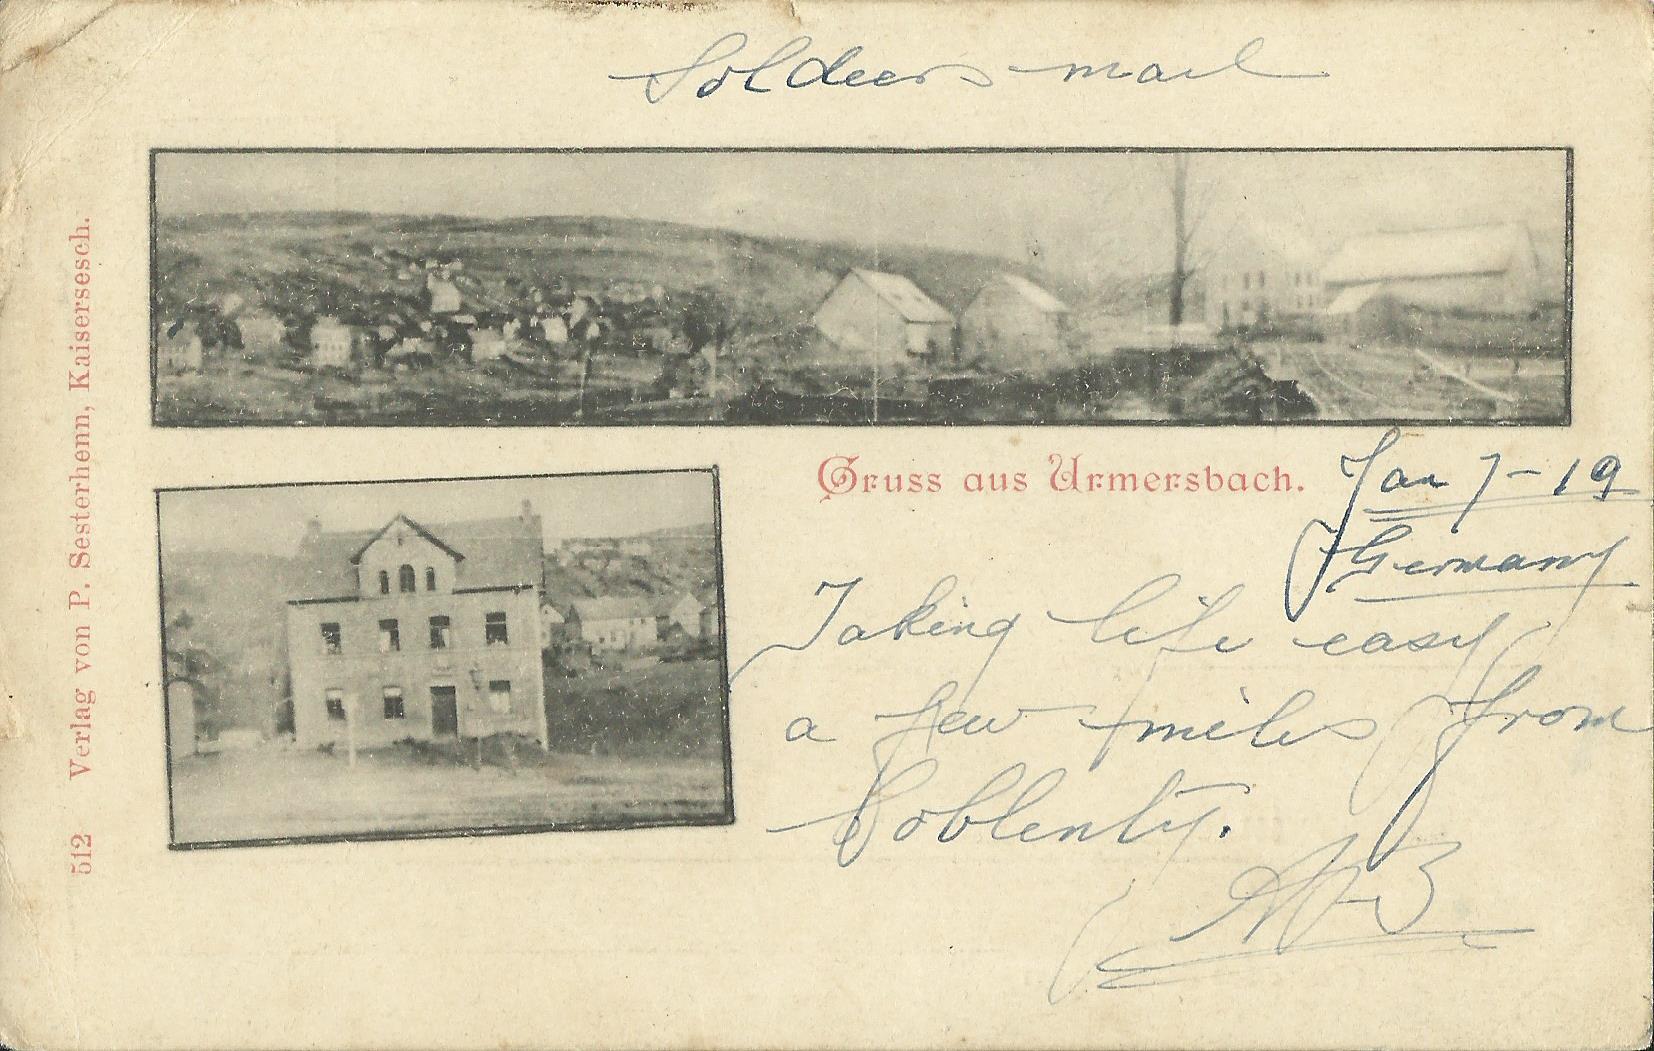 Soldiers mail
Gruss aus Urmersbach.
Jan 7-19
Germany
Taking life easy
a few miles from
Coblentz.
512 Verlag von P. Sesterhenn, Kaisersesch.